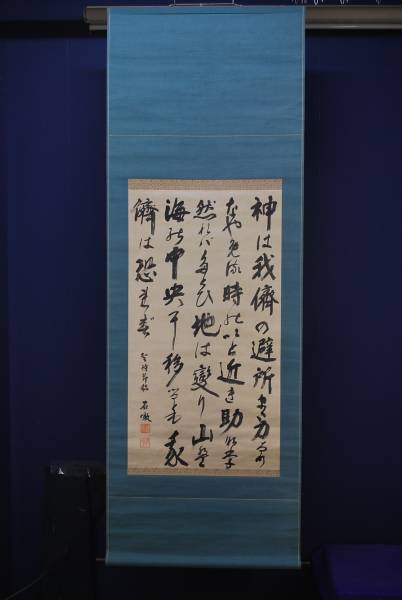 神は我儕の避所また力なり
なやめる時のいと近き助なり
然れバたとひ地は變り山は
海の中央に移るとも我
儕は恐れじ